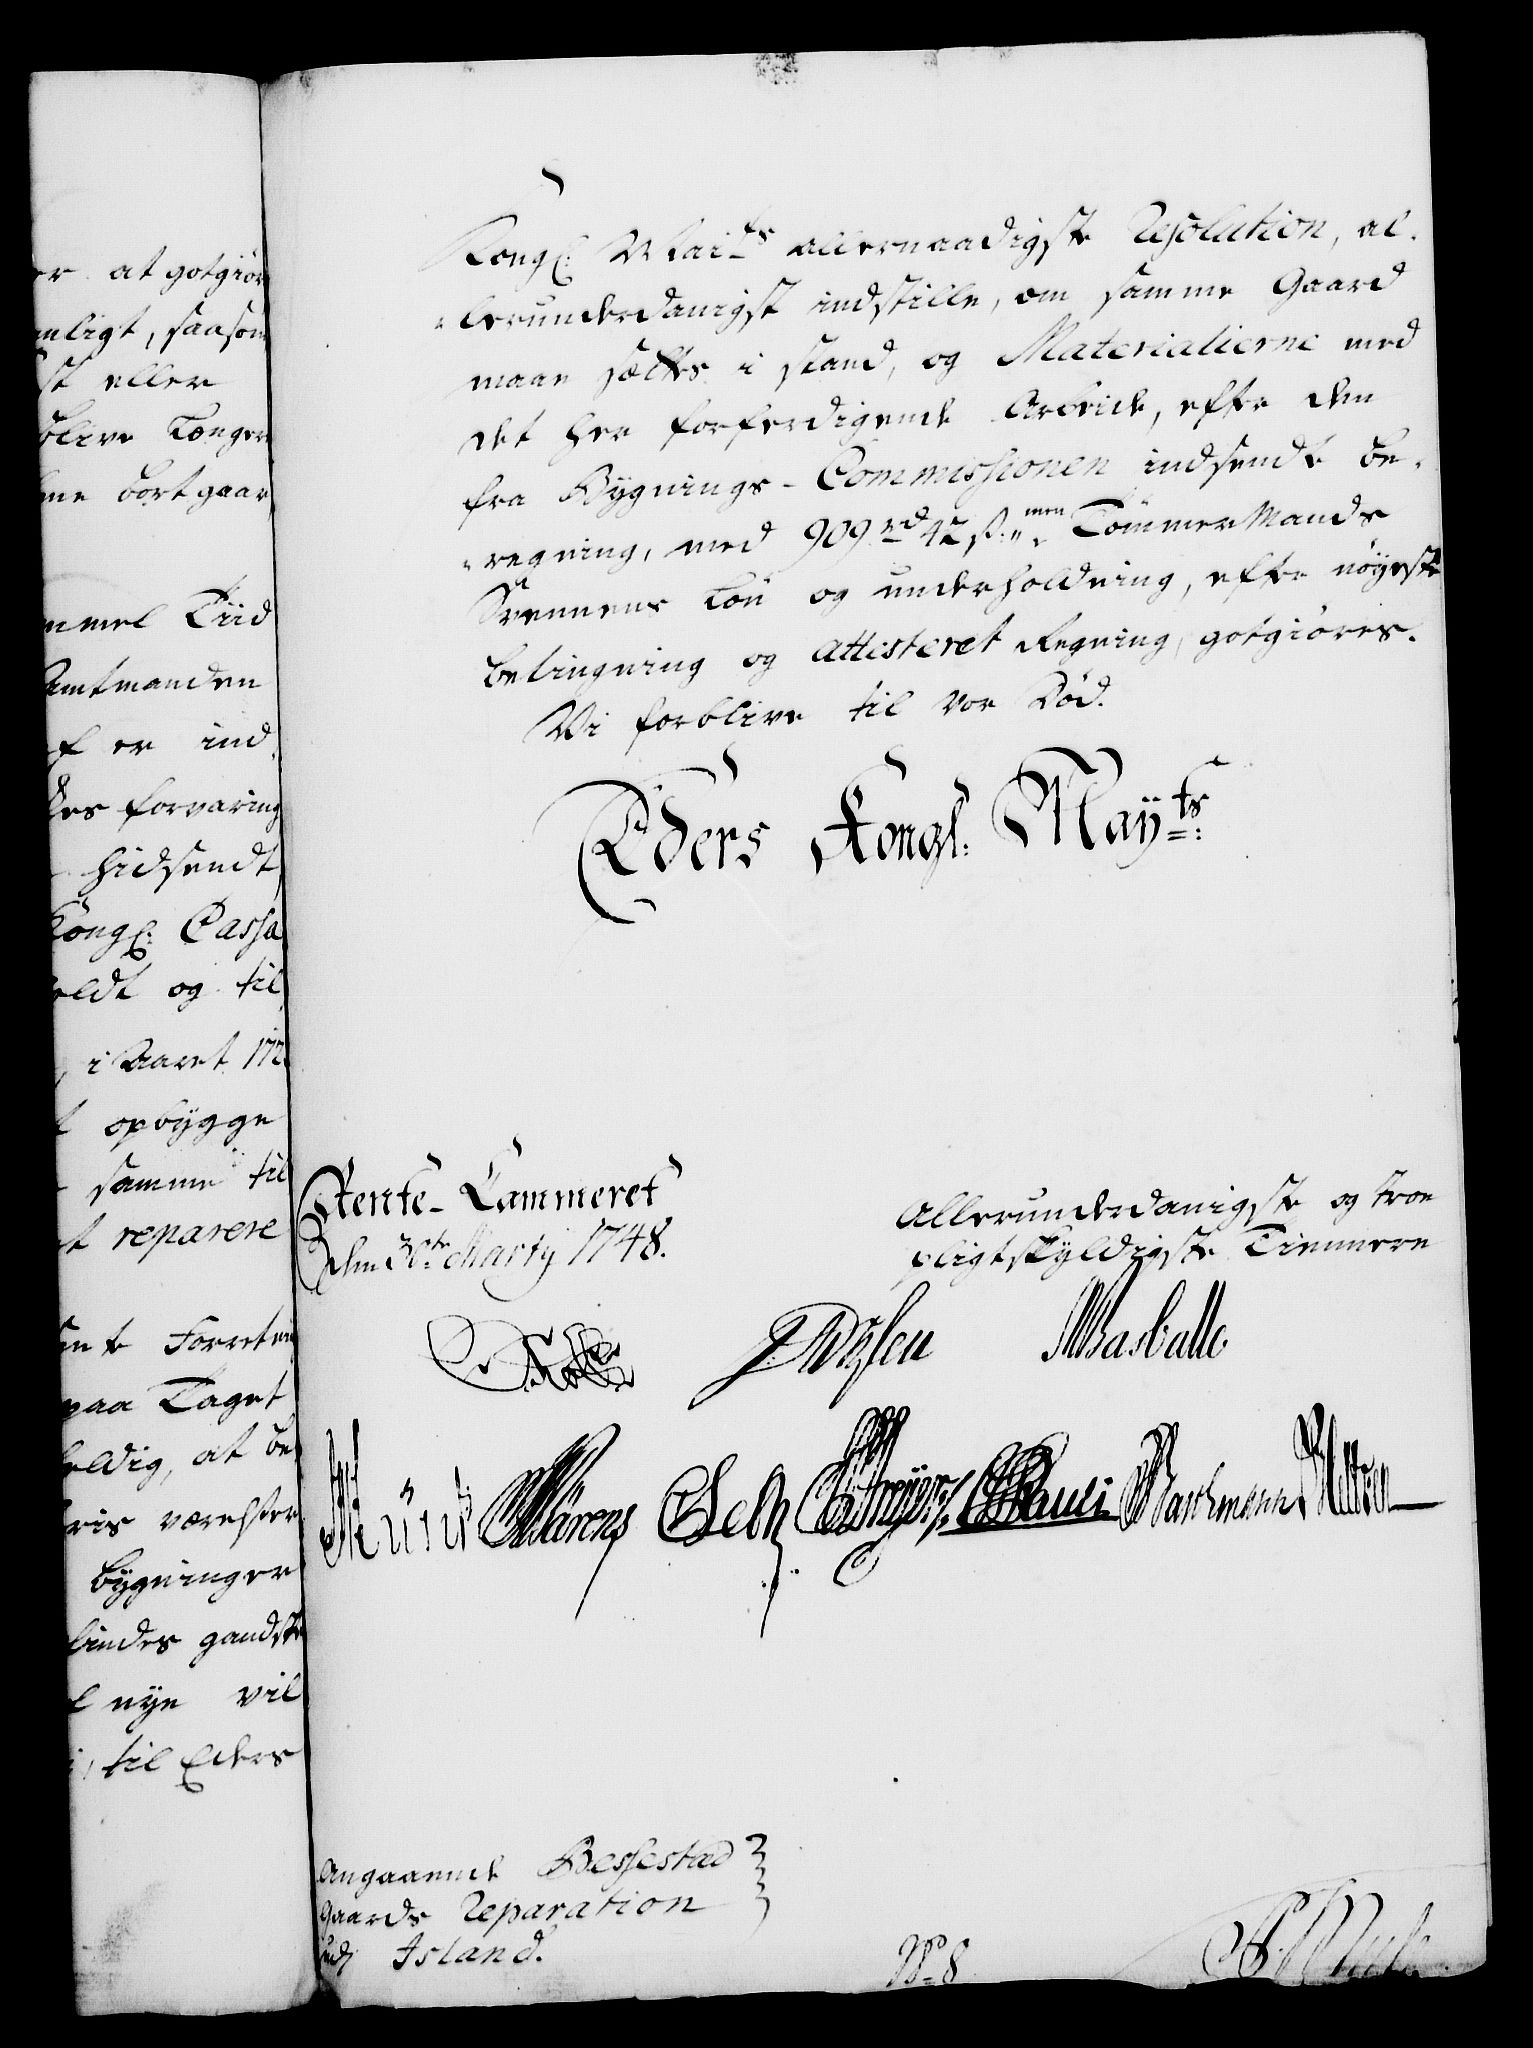 er at gotgiør
nligt, saasom
st eller
blive længer
ne bortgaar,
mmel Tiid
Amtmanden
f er ind,
kes forvaring
hidsendt,
Kongl: Cassa
eldt og til
, i Aaret 172
t opbygge
samme til
t reparere
nte Forretni
paa Taget
eldig, at be
ris værelser
bygninger
lindes gandske
l nye vil
i, til Eders
Kongl: Mai-ts allernaadigste Resolution, al-
lerunderdanigst indstille, om samme Gaard
maae sættes i stand, og Materialierne med
det her forferdigende Arbeide, efter den
fra Bygnings-Commissionen indsendte be-
regning, med 909 rd 42 ß: men Tømmer Mands
Svennens Løn og underholdning, efter nøyeste
betingning og attesteret Regning, gotgiøres.
Vi forblive til vor Død.
Eders Kongl: May:ts
Rente-Cammeret
den 30te Marty 1748.
Allerunderdanigste og troe
pligtskyldigste Tiennere
J. Wysen Basballe
Münt Wärens Selb C Pauli Barchmann Meltzer
Angaaende Bessestad
Gaards Reparation
udj Island.
No 8